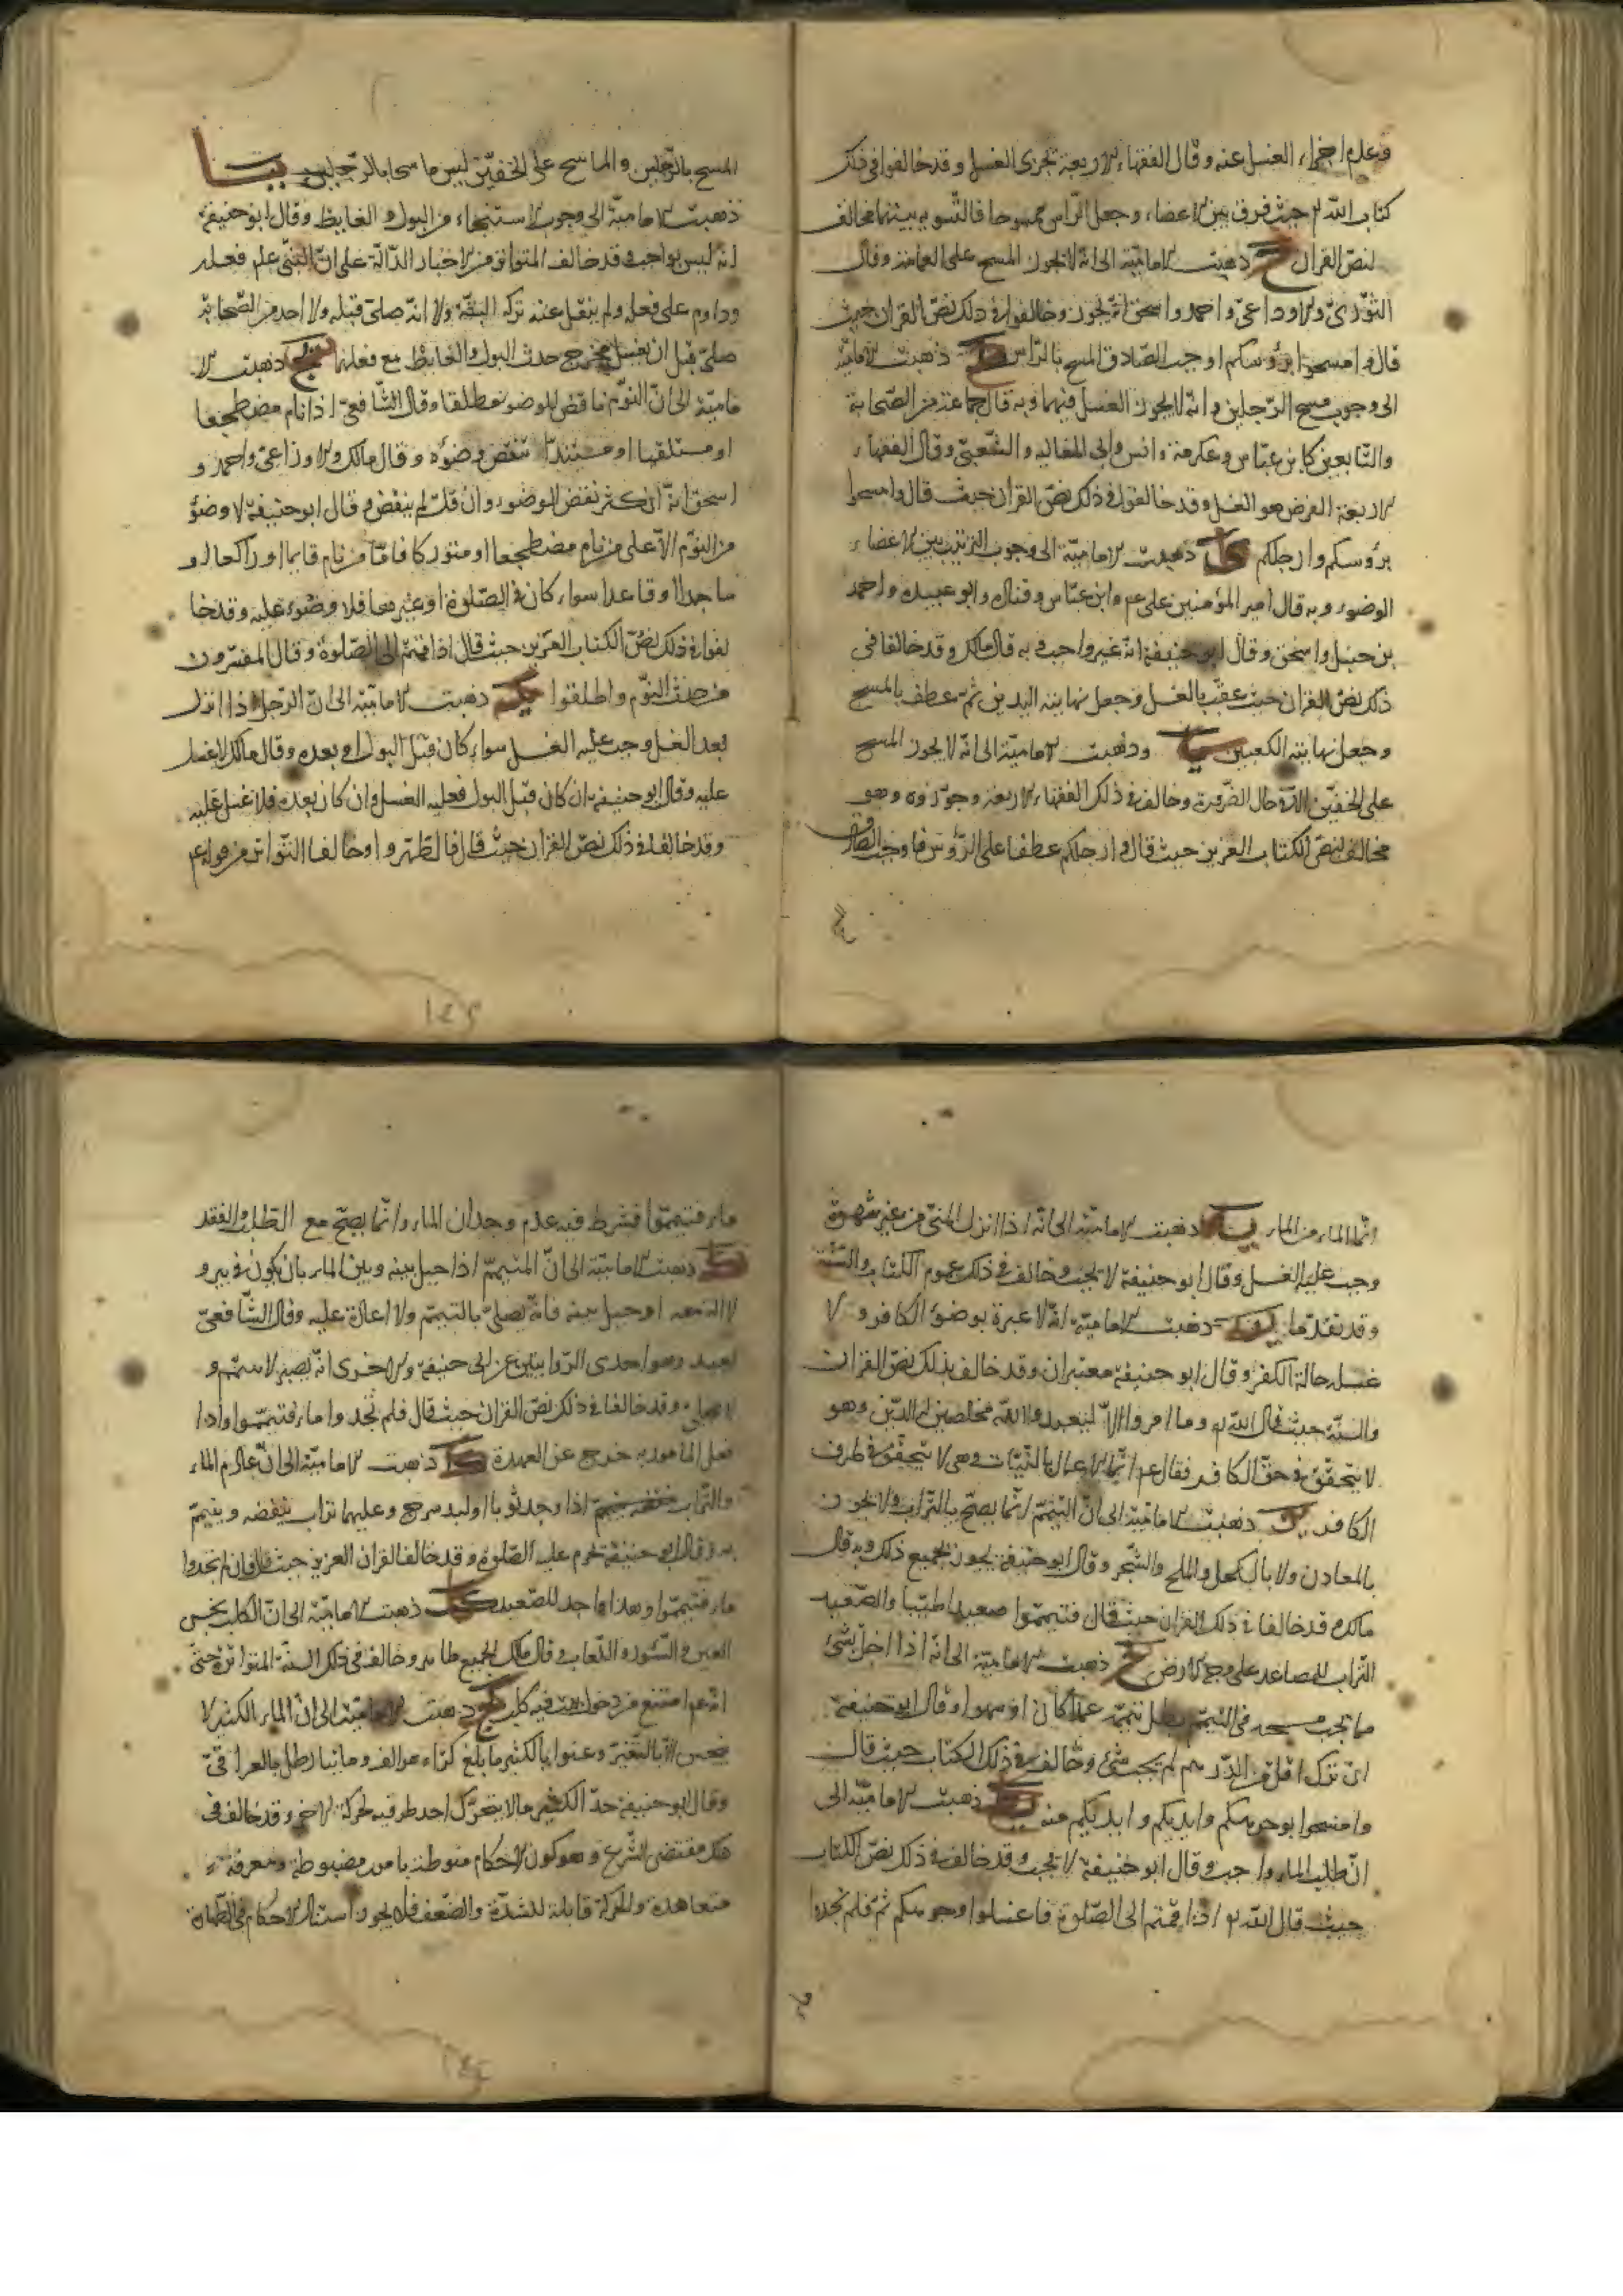 وعدم اجزاء الغسل عنه وقال الفقهاء الاربعة تجزى الغسل وقد خالفوا فى ذلك
كتاب الله تع حيث فرق بين الاعضاء وجعل الراس ممسوحا فالتسوية بينهما مخالف
لنص القران ح ذهبت الامامية الى انه لا يجوز المسح على العمامة وقال
الثورى والاوزاعى واحمد واسحق انه يجوز وخالفوا فى ذلك نص القران حيث
قال وامسحوا برؤسكم اوجب الصادق المسح بالراس ط ذهبت الامامية
الى وجوب مسح الرجلين وانه لا يجوز الغسل فيهما وبه قال جماعة من الصحابة
والتابعين كابن عباس وعكرمة وانس وابى العالية والشعبى وقال الفقهاء
الاربعة الفرض هو الغسل وقد خالفوا فى ذلك نص القران حيث قال وامسحوا
برؤسكم وارجلكم ذهبت الامامية الى وجوب الترتيب بين الاعضاء
الوضوء وبه قال امير المؤمنين على عم وابن عباس وقتادة وابو عبيدة واحمد
بن حنبل واسحق وقال ابو حنيفة انه غير واجب وبه قال مالك وقد خالفا فى
ذلك نص القران حيث عقب بالغسل وجعل نهايته اليدين ثم عطف بالمسح
وجعل نهايته الكعبين يا وذهبت الامامية الى انه لا يجوز المسح
على الخفين الا حال الضرورة وخالف فى ذلك الفقهاء الاربعة وجوزوه وهو
مخالف لنص الكتاب العزيز حيث قال وارجلكم عطفا على الرؤس فاوجب الصاق
المسح بالرجلين والماسح على الخفين ليس ماسحا بالرجلين يب
ذهبت الامامية الى وجوب الاستنجاء من البول والغايط وقال ابو حنيفة
انه ليس بواجب وقد خالف المتواتر من الاخبار الدالة على ان النبى عم فعله
وداوم على فعله ولم ينقل عنه تركه البتة ولا انه صلى قبله ولا احد من الصحابة
صلى قبل ان يغسل مخرج حدث البول والغايط مع فعلهما يج ذهبت الا
مامية الى ان النوم ناقض للوضوء مطلقا وقال الشافعى اذا نام مضطجعا
او مستلقيا او مستندا نتقض وضوئه وقال مالك والاوزاعى واحمد و
اسحق انه ان كثر نقض الوضوء وان قل لم ينقض وقال ابو حنيفة لا وضؤ
من النوم الا على من نام مضطجعا او متوركا فاما من نام قايما او راكعا او
ساجدا او قاعدا سواء كان فى الصلوة او غيرها فلا وضوء عليه وقد خا
لفوا فى ذلك نص الكتاب العزيز حيث قال اذا قمتم الى الصلوة وقال المفسرون
من حدث النوم واطلقوا يد ذهبت الامامية الى ان الرجل اذا انزل
بعد الغسل وجب عليه الغسل سواء كان قبل البول او بعده وقال مالك لا غسل
عليه وقال ابو حنيفة ان كان قبل البول فعليه الغسل وان كان بعده فلا غسل عليه
وقد خالفا فى ذلك نص القران حيث قال فاطهروا وخالفا التواتر من قوله عم
انما الماء من الماء يه ذهبت الامامية الى انه اذا انزل المنى من غير شهوة
وجب عليه الغسل وقال ابو حنيفة لا يجب وخالف فى ذلك عموم الكتاب والسنة
وقد تقدما يو ذهبت الامامية انه لا عبرة بوضوء الكافر و لا
غسله حالة الكفر وقال ابو حنيفة معتبران وقد خالف بذلك نص القران
والسنة حيث قال الله تع وما امروا الا ليعبدوا الله مخلصين له الدين وهو
لا يتحقق فى حق الكافر فقال عم انما الاعمال بالنيات وهى لا يتحقق فى طرف
الكافر يز ذهبت الامامية الى ان التيمم انما يصح بالتراب ولا يجوز
بالمعادن ولا بالكحل والملح والشجر وقال ابو حنيفة يجوز بجميع ذلك وبه قال
مالك وقد خالفا فى ذلك القران حيث قال فتيمموا صعيدا طيبا والصعيد
التراب المصاعد على وجه الارض يح ذهبت الامامية الى انه اذا اخل بشئ
مما يجب مسحه فى التيمم بطل تيممه عمدا كان او سهوا وقال ابو حنيفة
ان ترك اقل من الدرهم لم يجب شئ وخالف فى ذلك الكتاب حيث قال
وامسحوا بوجوهكم وايديكم وايديكم منه يط ذهبت الامامية الى
ان طلب الماء واجب وقال ابو حنيفة لا يجب وقد خالف فى ذلك نص الكتاب
حيث قال الله تع اذا قمتم الى الصلوة فاغسلوا وجوهكم ثم فلم تجدوا
ماء فتيمموا فشرط فيه عدم وجدان الماء وانما يصح مع الطلب والفقد
ك ذهبت الامامية الى ان المتيمم اذا حيل بينه وبين الماء بان يكون فى بير و
لا الة معه او حيل بينه فانه يصلى بالتيمم ولا اعادة عليه وقال الشافعى
يعيد وهو احدى الروايتين عن ابى حنيفة والاخرى انه يصبر لا يتيمم و
لا يصلى وقد خالفا فى ذلك نص القران حيث قال فلم تجدوا ماء فتيمموا واذا
فعل المامور به خرج عن العهدة كا ذهبت الامامية الى ان عادم الماء
والتراب اذا وجد ثوبا او لبد سرج وعليهما تراب ينفضه ويتيمم
به وقال ابو حنيفة تحرم عليه الصلوة وقد خالف القران العزيز حيث قال فان لم تجدوا
ماء فتيمموا وهذا واجد للصعيد كب ذهبت الامامية الى ان الكلب نجس
العين والسؤر واللعاب وقال مالك الجميع طاهر وخالف فى ذلك السنة المتواترة حتى
انه عم امتنع من دخول بيت فيه كلب كج ذهبت الامامية الى ان الماء الكثير لا
ينجس الا بالتغير وعنوا بالكثير ما بلغ كرا وهو الف ومائتا رطل بالعراقى
وقال ابو حنيفة حد الكثير ما لا يتحرك احد طرفيه بحركة الاخر وقد خالف فى
هذا مقتضى الشرع وهو كون الاحكام منوطة بامور مضبوطة ومعرفة
متعاهدة والحركة قابلة للشدة والضعف فلا يجوز استناد الاحكام فى الطهارة